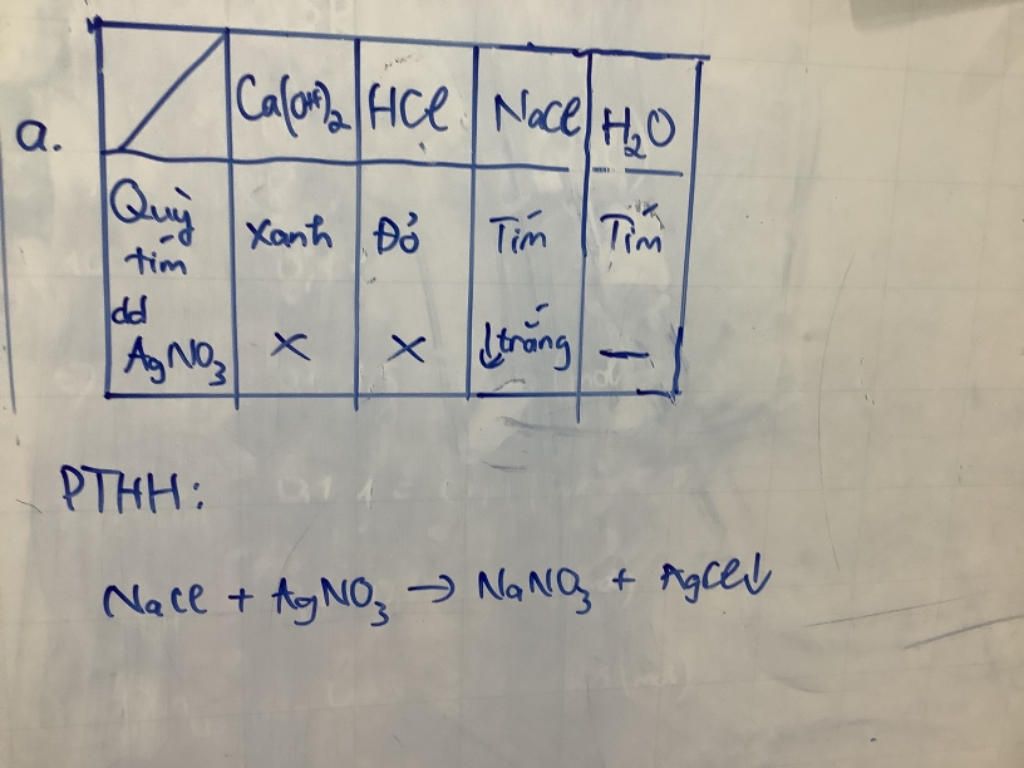 a.
Ca(OH)₂ HCl NaCl H₂O
Quỳ tím Xanh Đỏ Tím Tím
dd AgNO₃ × × ↓trắng —
PTHH:
NaCl + AgNO₃ → NaNO₃ + AgCl↓